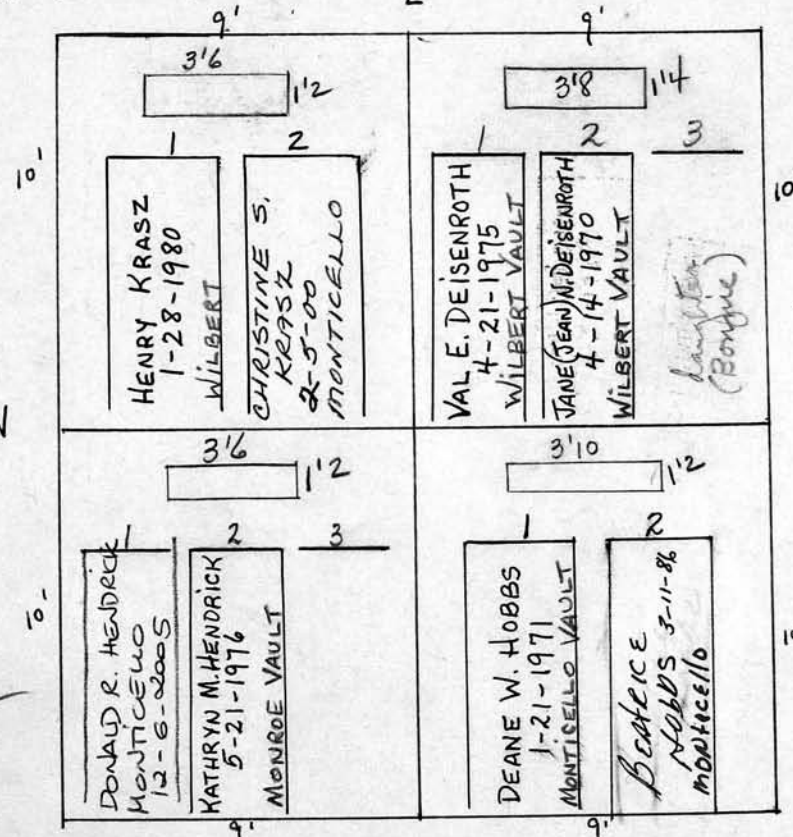 9'
9'
3'6
1'2
3'8
1'4
10'
10
1
2
HENRY KRASZ
1-28-1980
WILBERT
CHRISTINE S.
KRASZ
2-5-00
MONTICELLO
1
2
3
VAL E. DEISENROTH
4-21-1975
WILBERT VAULT
JANE (JEAN) N. DEISENROTH
4-14-1970
WILBERT VAULT
daughter
3'6
1'2
3'10
1'2
10'
1
2
3
DONALD R. HENDRICK
MONTICELLO
12-6-2005
KATHRYN M. HENDRICK
5-21-1976
MONROE VAULT
1
2
DEANE W. HOBBS
1-21-1971
MONTICELLO VAULT
Beatrice
Hobbs 3-11-86
Monticello
9'
9'